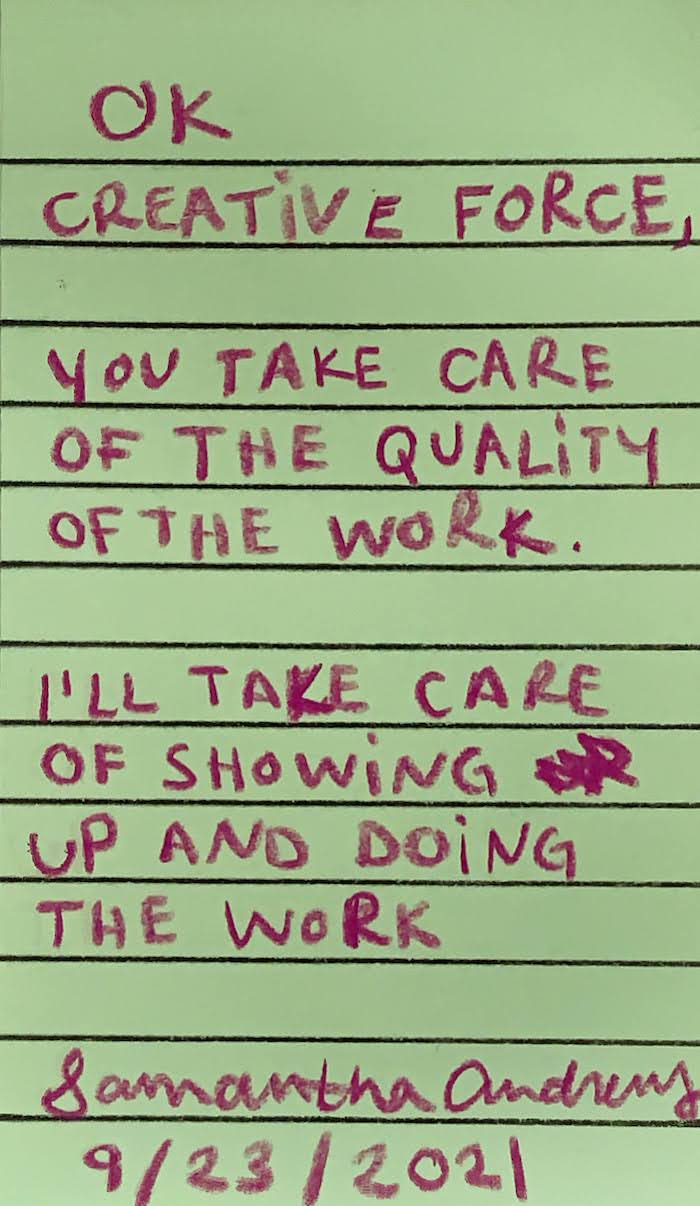 OK
CREATiVE FORCE,
YOU TAKE CARE
OF THE QUALiTY
OF THE WORK.
I'LL TAKE CARE
OF SHOWiNG
UP AND DOiNG
THE WORK
Samantha Andrews
9/23/2021